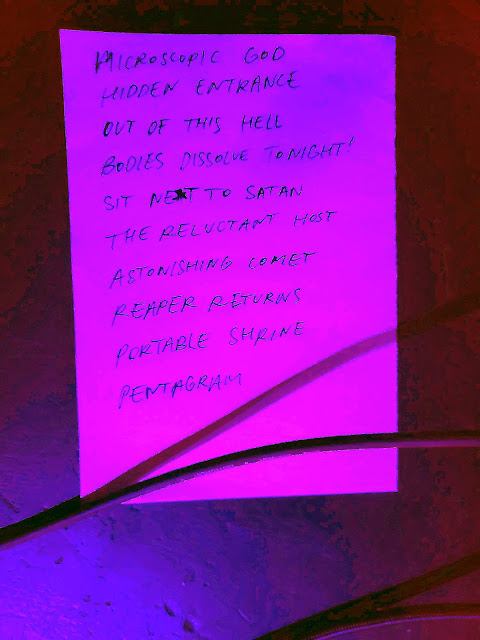 MICROSCOPIC GOD
HIDDEN ENTRANCE
OUT OF THIS HELL
BODIES DISSOLVE TONIGHT!
SIT NEXT TO SATAN
THE RELUCTANT HOST
ASTONISHING COMET
REAPER RETURNS
PORTABLE SHRINE
PENTAGRAM